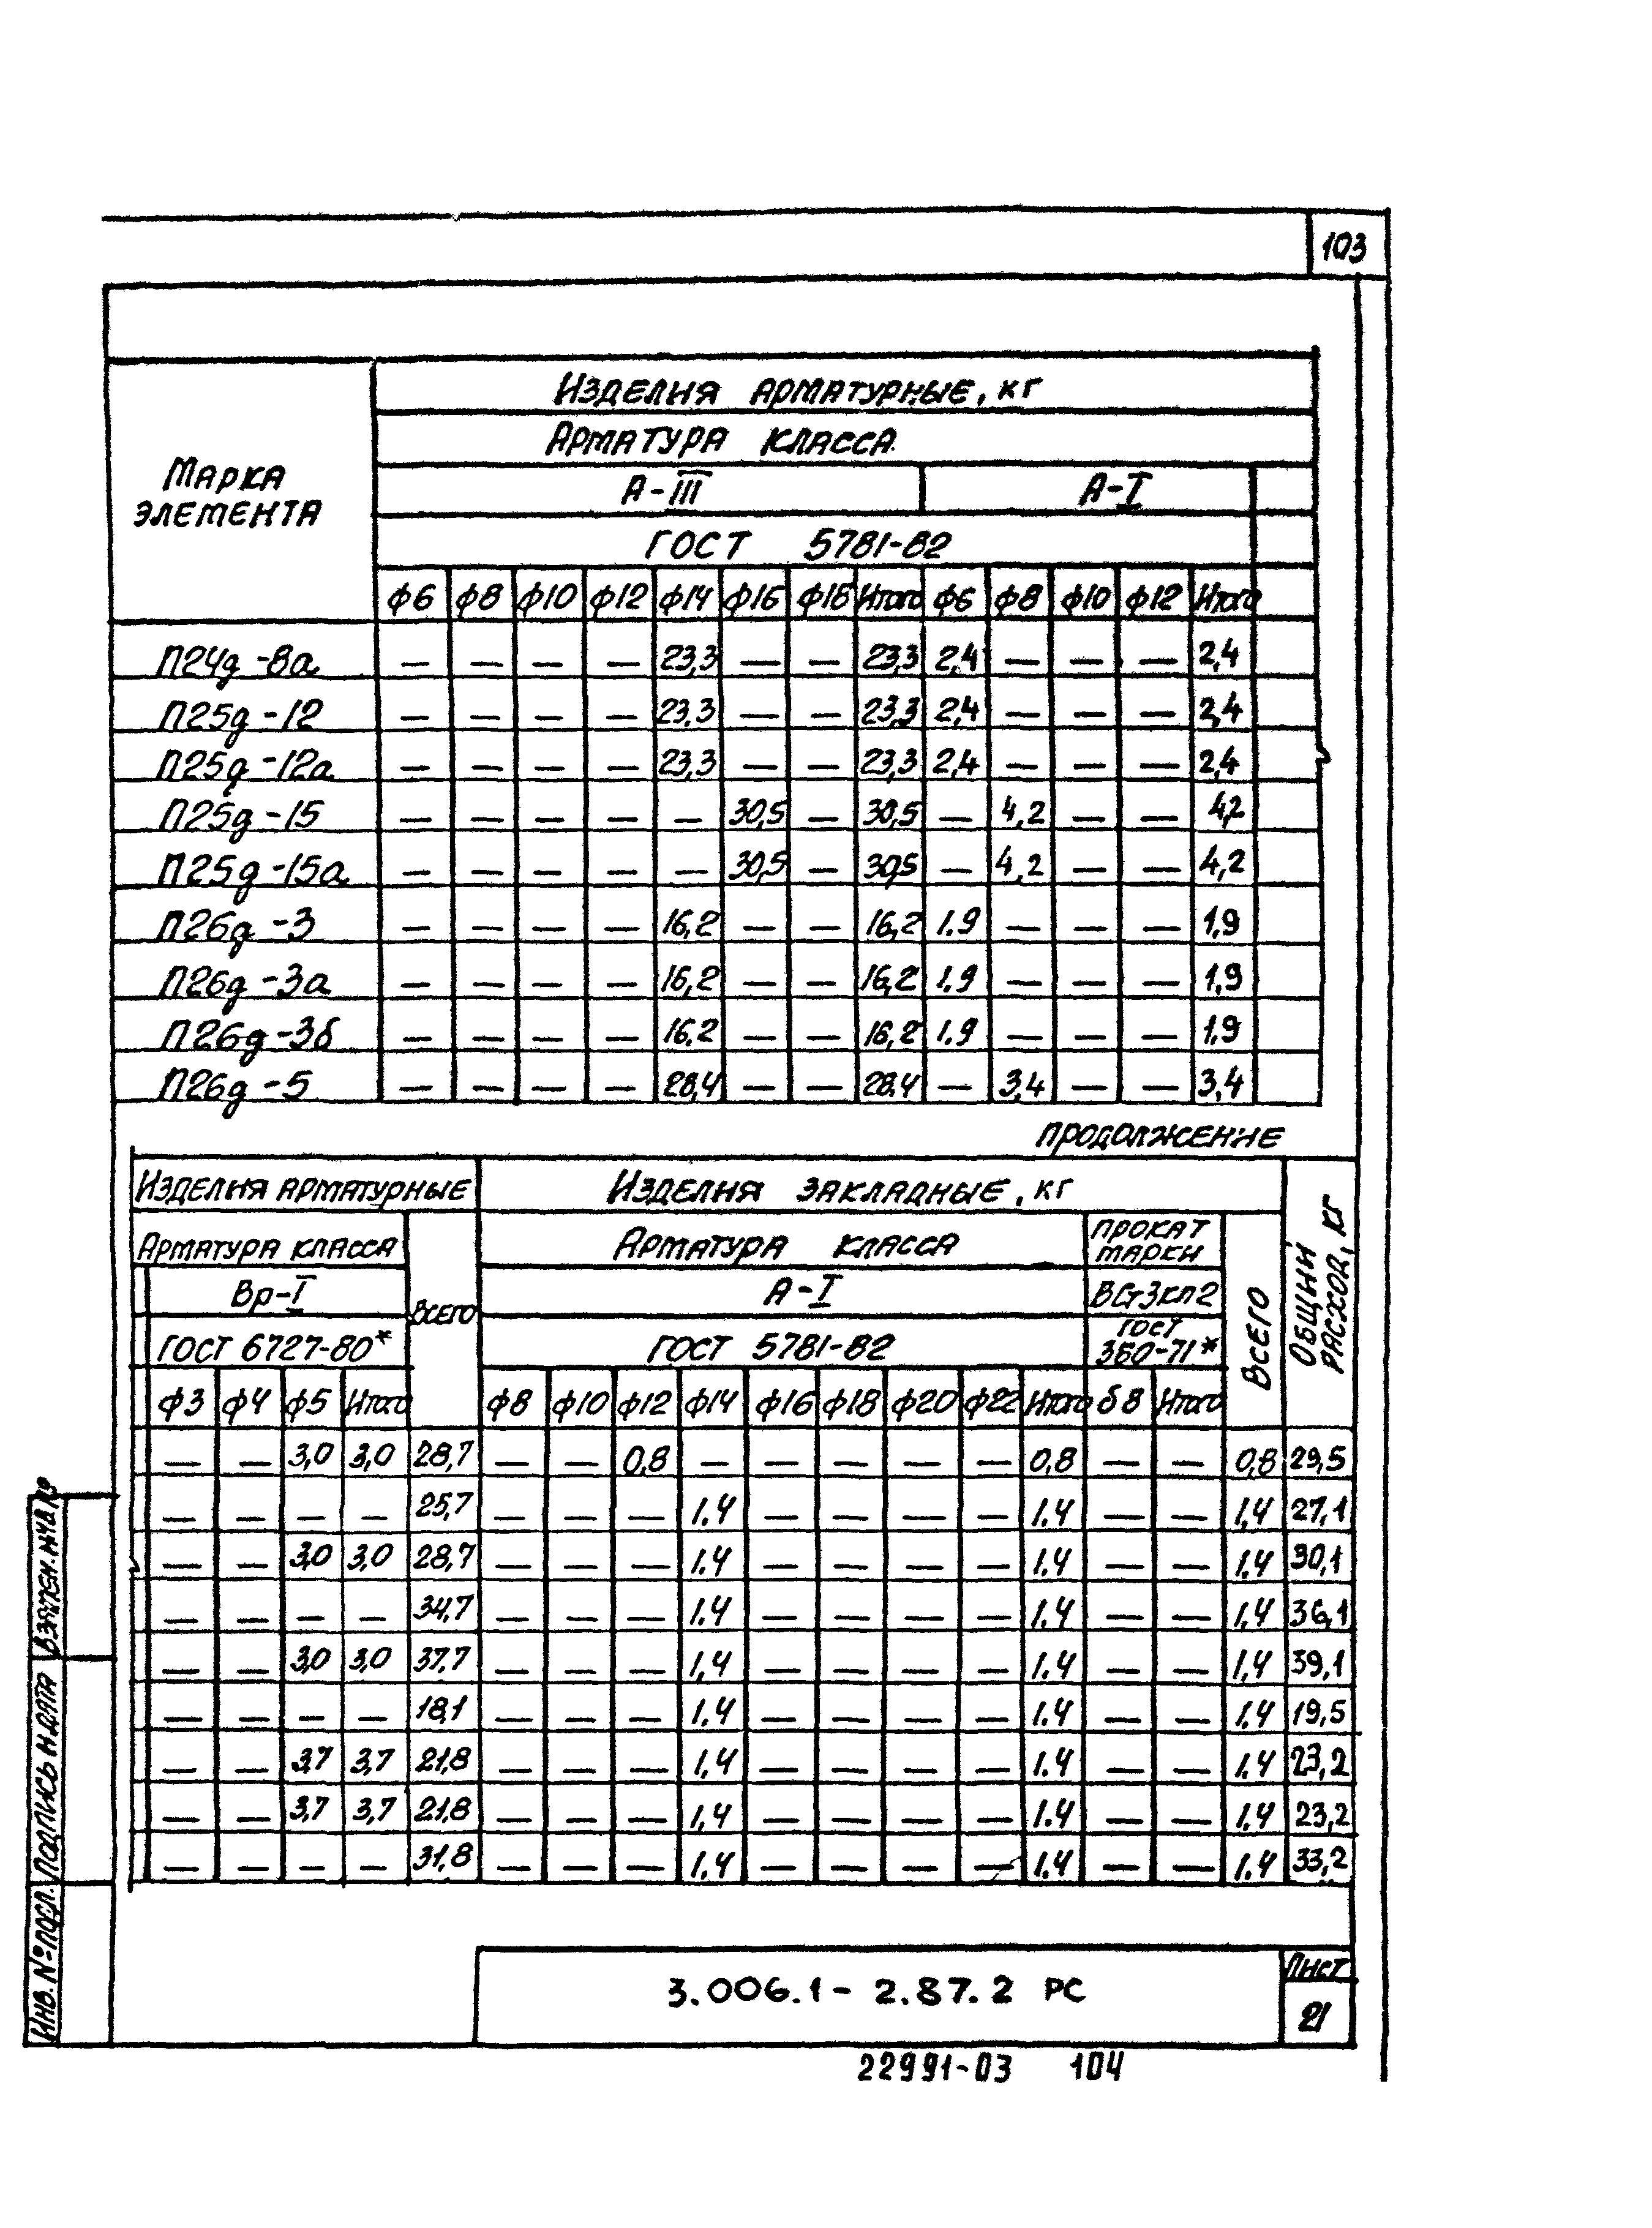 103
Изделия арматурные, кг
Арматура класса
Марка элемента
А-III А-I
ГОСТ 5781-82
ф6 ф8 ф10 ф12 ф14 ф16 ф18 Итого ф6 ф8 ф10 ф12 Итого
П24д-8а — — — — 23,3 — — 23,3 2,4 — — — 2,4
П25д-12 — — — — 23,3 — — 23,3 2,4 — — — 2,4
П25д-12а — — — — 23,3 — — 23,3 2,4 — — — 2,4
П25д-15 — — — — — 30,5 — 30,5 — 4,2 — — 4,2
П25д-15а — — — — — 30,5 — 30,5 — 4,2 — — 4,2
П26д-3 — — — — 16,2 — — 16,2 1,9 — — — 1,9
П26д-3а — — — — 16,2 — — 16,2 1,9 — — — 1,9
П26д-3б — — — — 16,2 — — 16,2 1,9 — — — 1,9
П26д-5 — — — — 28,4 — — 28,4 — 3,4 — — 3,4
продолжение
Изделия арматурные Изделия закладные, кг Общий расход, кг
Арматура класса Всего Арматура класса Прокат марки Всего
Вр-I А-I ВСт3кп2
ГОСТ 6727-80* ГОСТ 5781-82 ГОСТ 380-71*
ф3 ф4 ф5 Итого ф8 ф10 ф12 ф14 ф16 ф18 ф20 ф22 Итого б8 Итого
— — 3,0 3,0 28,7 — — 0,8 — — — — — 0,8 — — 0,8 29,5
— — — — 25,7 — — — 1.4 — — — — 1.4 — — 1,4 27,1
— — 3,0 3,0 28,7 — — — 1.4 — — — — 1.4 — — 1,4 30,1
— — — — 34,7 — — — 1.4 — — — — 1.4 — — 1,4 36,1
— — 3,0 3,0 37,7 — — — 1,4 — — — — 1.4 — — 1,4 39,1
— — — — 18,1 — — — 1.4 — — — — 1.4 — — 1.4 19,5
— — 3,7 3,7 21,8 — — — 1,4 — — — — 1.4 — — 1.4 23,2
— — 3,7 3,7 21,8 — — — 1,4 — — — — 1.4 — — 1,4 23,2
— — — — 31,8 — — — 1.4 — — — — 1.4 — — 1.4 33,2
Взамен. инв №
Подпись и дата
Инв. № подл.
3.006.1-2.87.2 РС
Лист
21
22991-03 104